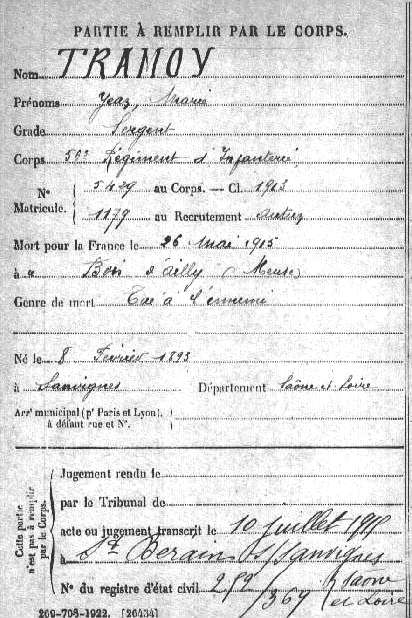 PARTIE À REMPLIR PAR LE CORPS.
Nom TRAMOY
Prénoms Jean, Marie
Grade Sergent
Corps 56e Régiment d'Infanterie
N° Matricule. 5429 au Corps. — Cl. 1913
1179 au Recrutement Autun
Mort pour la France le 26 Mai 1915
à Bois d'Ailly (Meuse)
Genre de mort Tué à l'ennemi
Né le 8 Février 1893
à Sanvignes Département Saône et Loire
Arrt municipal (pr Paris et Lyon),
à défaut rue et N°.
Cette partie
n'est pas à remplir
par le Corps.
Jugement rendu le
par le Tribunal de
acte ou jugement transcrit le 10 juillet 1915
à St Berain s/Sanvignes
N° du registre d'état civil 292/367 (Saone
et Loire
269-708-1922. [26434]